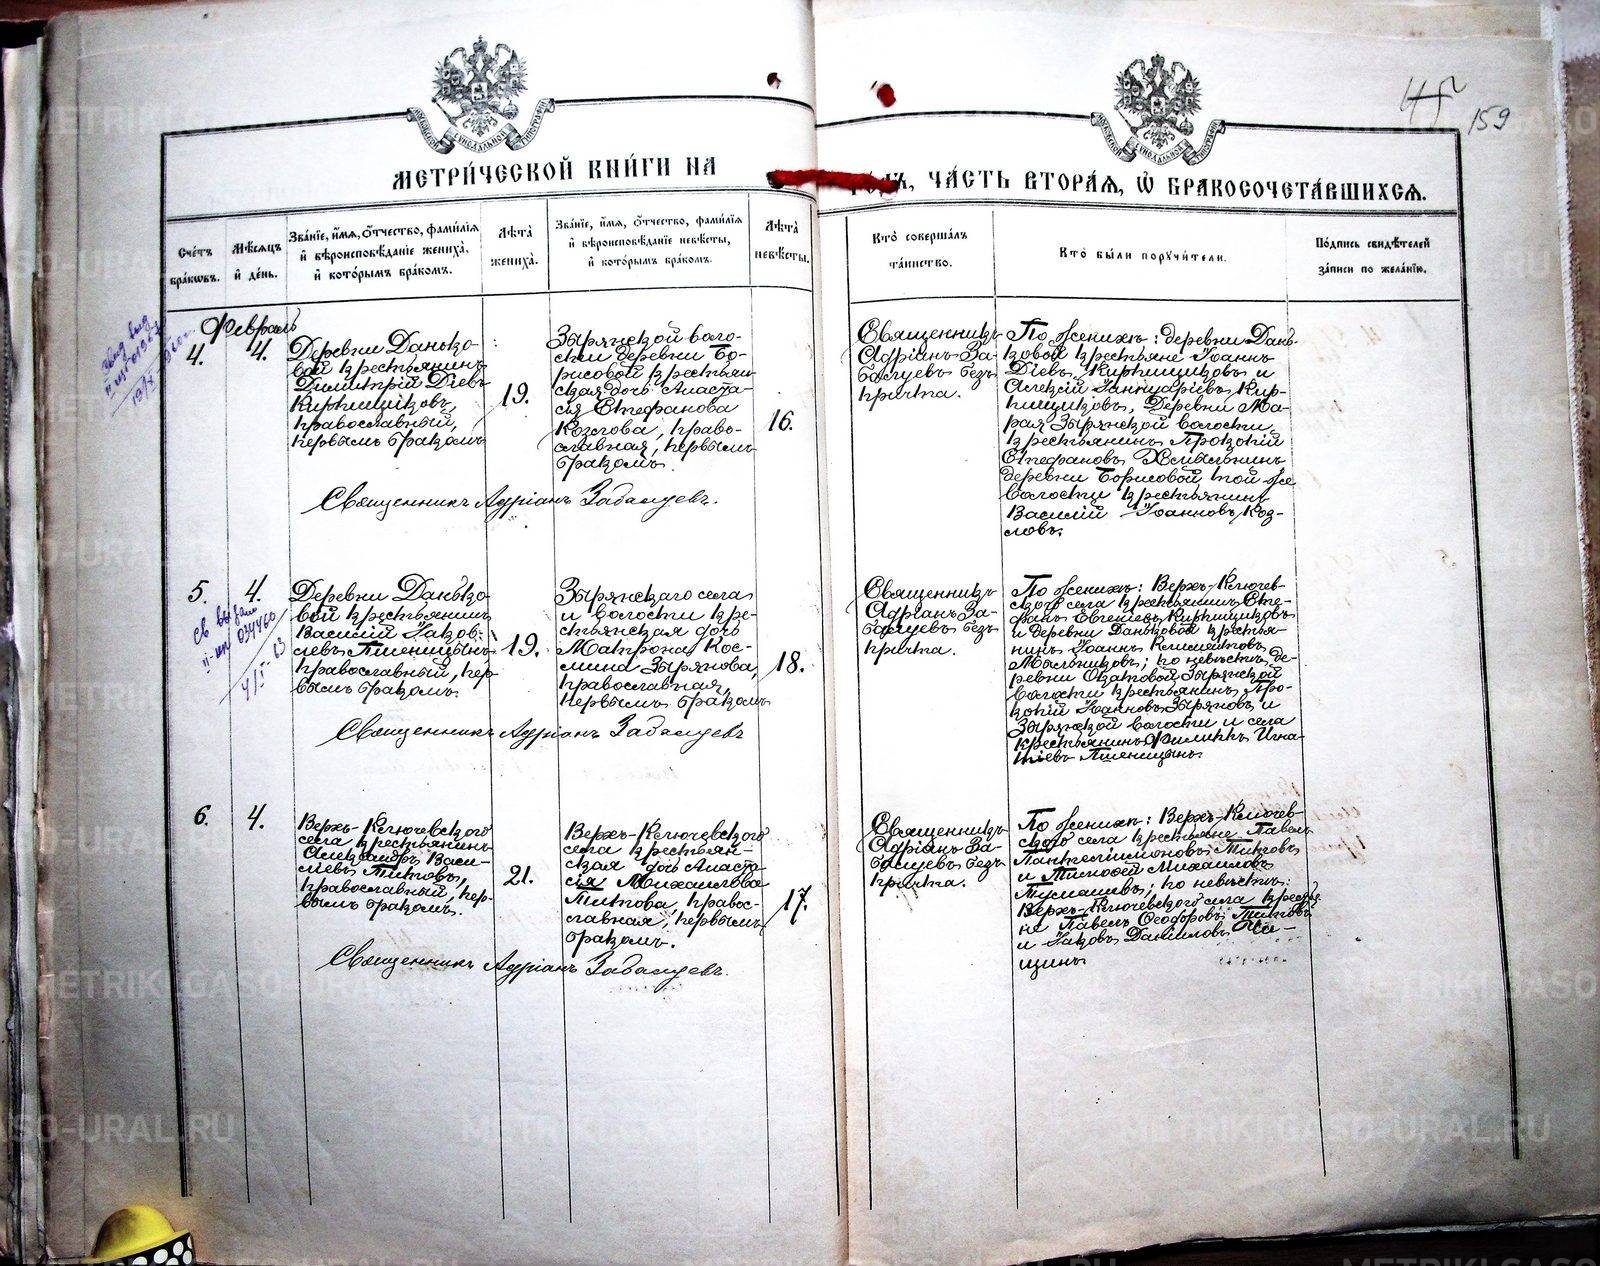 159
МЕТРИ́ЧЕСКОЙ КНИ́ГИ НА
ГО́ДЪ, ЧА́СТЬ ВТОРА́Я, Ѽ БРАКОСОЧЕТА́ВШИХСЯ.
Сче́тъ бра́кѡвъ.
Мѣ́сяцъ и́ де́нь.
Зва́нїе, и́мя, о́тчество, фами́лїя и́ вѣроисповѣ́данїе жениха̀, и́ кото́рымъ бра́комъ.
Лѣ́та̀ жениха̀.
Зва́нїе, и́мя, о́тчество, фами́лїя и́ вѣроисповѣ́данїе невѣ́сты, и́ кото́рымъ бра́комъ.
Лѣ́та̀ невѣ́сты.
Кто̀ соверша́лъ та́инство.
Кто̀ бы́ли поручи́тели.
По́дпись свидѣ́телей за́писи по жела́нїю.
Февраль
4.
4.
Деревни Данько-
вой крестьянинъ
Димитрій Діевъ
Кирпищиковъ,
православный,
первымъ бракомъ
19.
Зырянской воло-
сти деревни Бо-
рисовой крестьян-
ская дочь Анаста-
сія Стефанова
Козлова, право-
славная, первымъ
бракомъ.
16.
Священникъ
Адріанъ За-
балуевъ безъ
причта.
По женихѣ: деревни Дань-
ковой крестьяне Іоаннъ
Діевъ Кирпищиковъ и
Алексій Іаннуаріевъ Кир-
пищиковъ, Деревни Ма-
рая Зырянской волости
крестьянинъ Прокопій
Стефановъ
деревни Борисовой той же
волости крестьянинъ
Василій Іоанновъ Коз-
ловъ.
Священникъ Адріанъ Забалуевъ.
5.
4.
Деревни Данько-
вой крестьянинъ
Василій Іаков-
левъ Пшеницынъ
православный, пер-
вымъ бракомъ.
19.
Зырянскаго села
и волости кре-
стьянская дочь
Матрона Кос-
мина Зырянова,
православная,
первымъ бракомъ
18.
Священникъ
Адріанъ За-
балуевъ безъ
причта.
По женихѣ: Верхъ-Ключев-
ского села крестьянинъ Сте-
фанъ Евгеніевъ Кирпищиковъ
и деревни Даньковой крестья-
нинъ Іоаннъ Климентовъ
Мыльниковъ; по невѣстѣ: де-
ревни Зырянской
волости крестьянинъ Про-
копій Іоанновъ Зыряновъ и
Зырянской волости и села
крестьянинъ Филиппъ Игна-
тіевъ Пшеницынъ.
Священникъ Адріанъ Забалуевъ
6.
4.
Верхъ-Ключевского
села крестьянинъ
Александръ Васи-
льевъ Титовъ,
православный, пер-
вымъ бракомъ.
21.
Верхъ-Ключевского
села крестьян-
ская дочь Анаста-
сія Михаилова
Титова, правос-
лавная, первымъ
бракомъ.
17.
Священникъ
Адріанъ За-
балуевъ безъ
причта.
По женихѣ: Верхъ-Ключев-
ского села крестьяне Павелъ
Пантелиимоновъ Титовъ
и Тимофей Михаиловъ
Тумашевъ; по невѣстѣ:
Верхъ-Ключевского села крестья-
не Павелъ Ѳеодоровъ Титовъ
и Іаковъ Данииловъ
Священникъ Адріанъ Забалуевъ.
METRIKI.GASO-URAL.RU